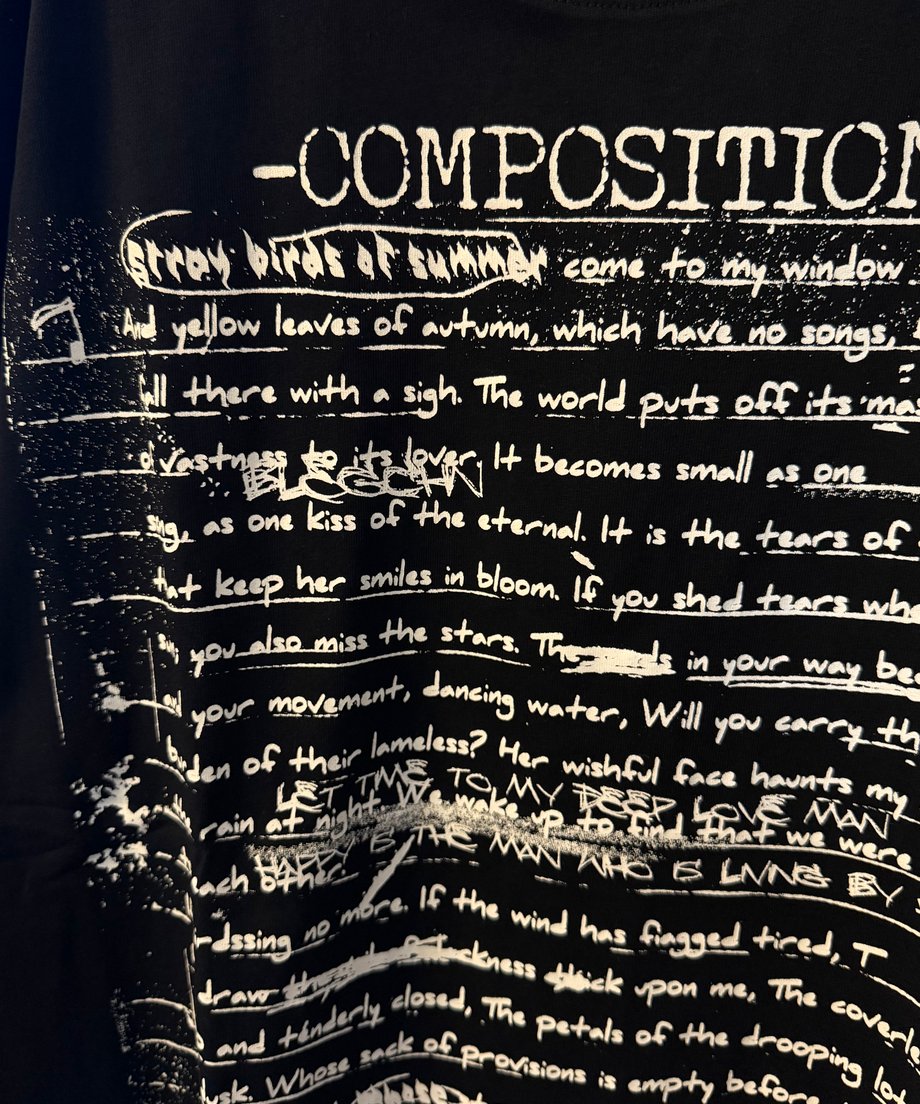 -COMPOSITION
stray birds of summer come to my window
And yellow leaves of autumn, which have no songs,
all there with a sigh. The world puts off its mas
vastness to its lover. It becomes small as one
BLEGCHN
as one kiss of the eternal. It is the tears of
hat keep her smiles in bloom. If you shed tears whe
you also miss the stars. The in your way bec
your movement, dancing water, Will you carry th
den of their lameless? Her wishful face haunts my
LET TIME TO MY DEEP LOVE MAN
rain at night. We wake up to find that we were
HAPPY IS THE MAN WHO IS LIVING BY
ach other.
rdssing no more. If the wind has fiagged tired, T
draw ckness upon me, The coverle
and tenderly closed, The petals of the drooping lot
usk. Whose sack of provisions is empty before